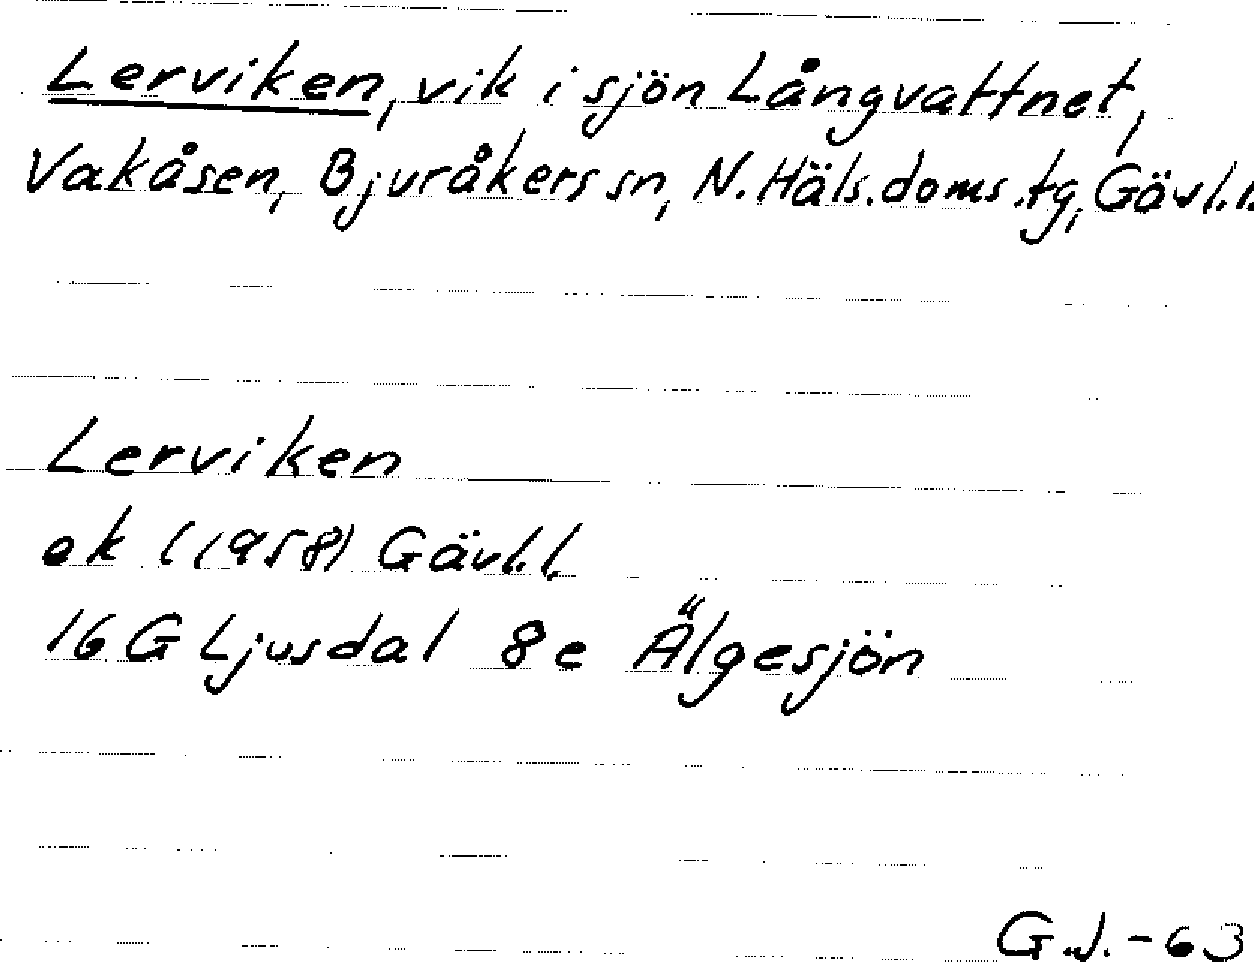 Lerviken, vik i sjön Långvattnet,
Vakåsen, Bjuråkers sn, N. Häls. doms. tg, Gävl. l.
Lerviken
ek (1958) Gävl. l.
16 G Ljusdal 8e Älgesjön
G.J. - 63